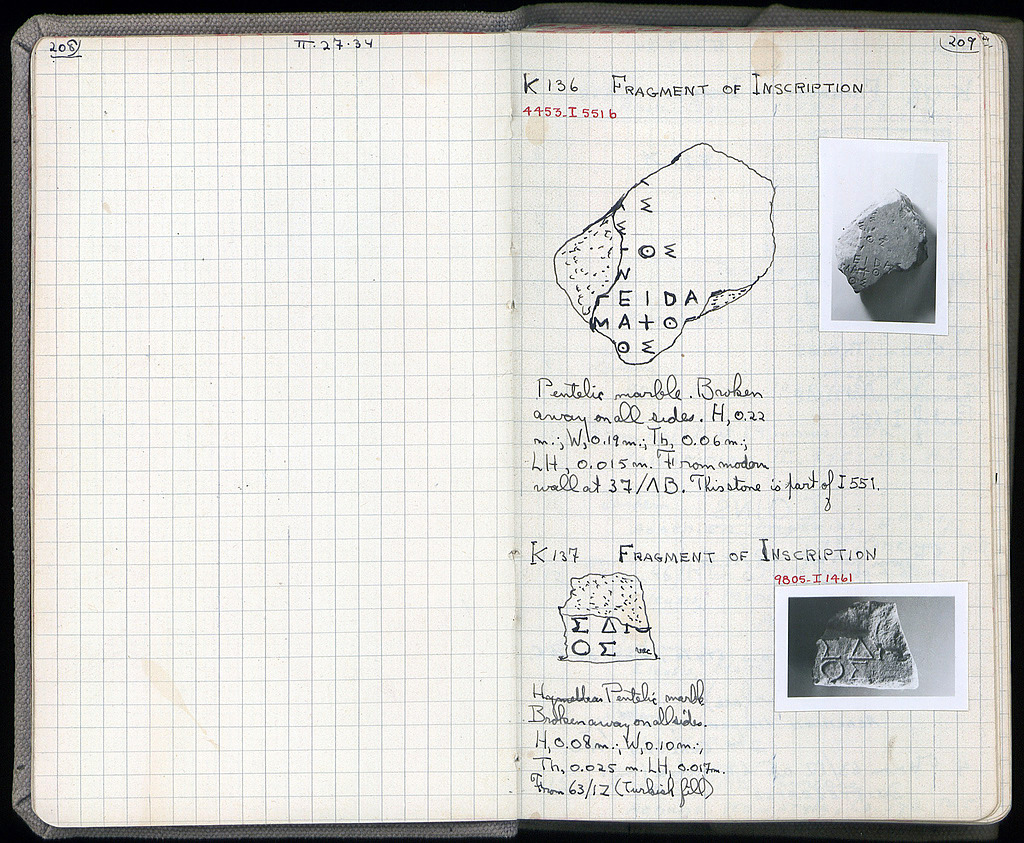 208
II·27·34
209
K 136 FRAGMENT OF INSCRIPTION
4453-I 551 b
Σ
Σ
ΘΣ
Ν
ΓΕΙDΑ
ΜΑ+Ο
ΘΣ
Pentelic marble. Broken
away on all sides. H, 0.22
m.; W, 0.19 m.; Th, 0.06 m.;
LH, 0.015 m. From modern
wall at 37/ΛB. This stone is part of I 551.
K 137 FRAGMENT OF INSCRIPTION
9805-I 1461
ΣΔ
ΟΣ vac
Hymettian Pentelic marble
Broken away on all sides.
H, 0.08 m.; W, 0.10 m.;
Th, 0.025 m. LH, 0.017 m.
From 63/ΙΖ (Turkish fill)